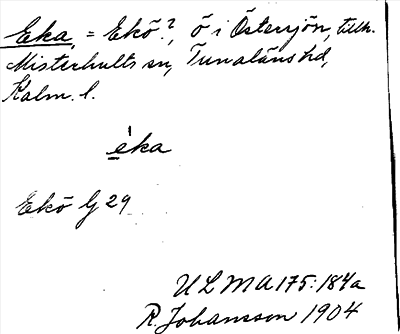 Eka, = Ekö?, ö i Östersjön, tillh.
Misterhults sn, Tunaläns hd,
Kalm. l.
èka
Ekö G 29
ULMA 175:184a
R. Johansson 1904